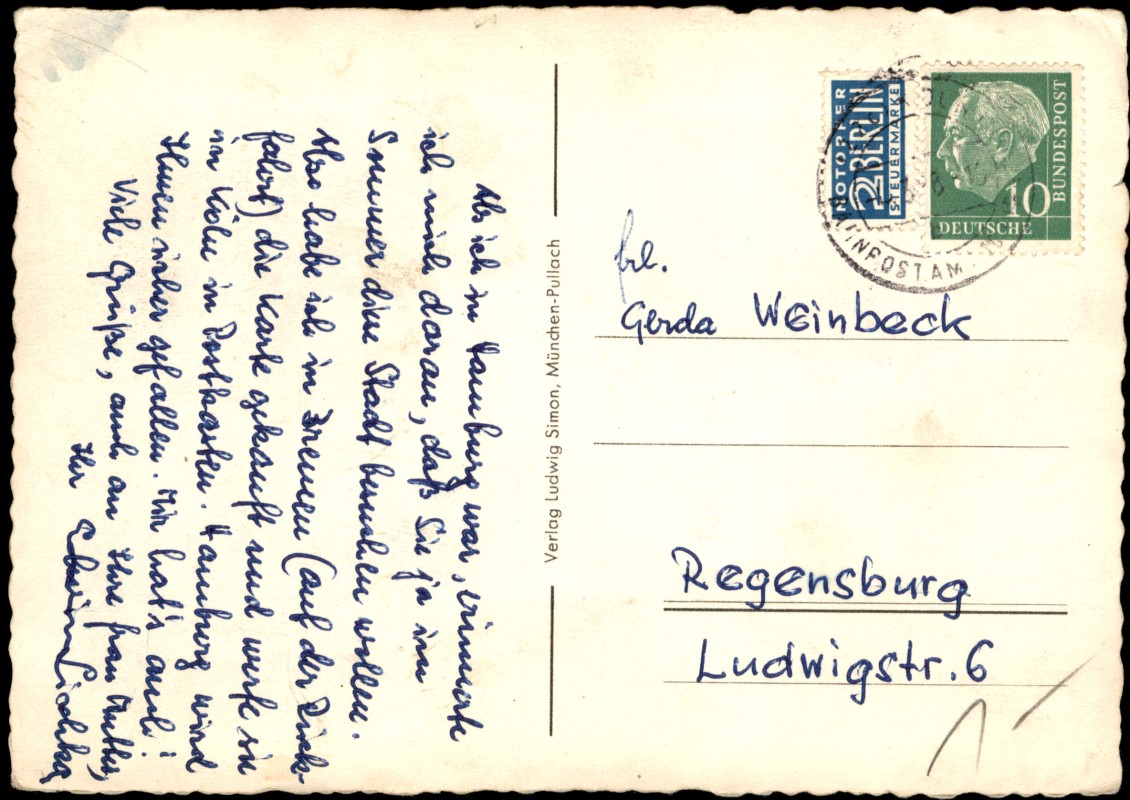 Als ich in Hamburg war, erinnerte
ich mich daran, daß Sie ja im
Sommer diese Stadt besuchen wollen.
Also habe ich in Bremen (auf der Rück-
fahrt) die Karte gekauft und werfe sie
in Köln in Postkasten. Hamburg wird
Ihnen sicher gefallen. Mir hat's auch!
Viele Grüße, auch an Ihre Frau Mutter,
Ihr
Verlag Ludwig Simon, München-Pullach
NOTOPFER
2 BERLIN
STEUERMARKE
10
DEUTSCHE
BUNDESPOST
BAHNPOSTAMT
Frl.
Gerda Weinbeck
Regensburg
Ludwigstr. 6